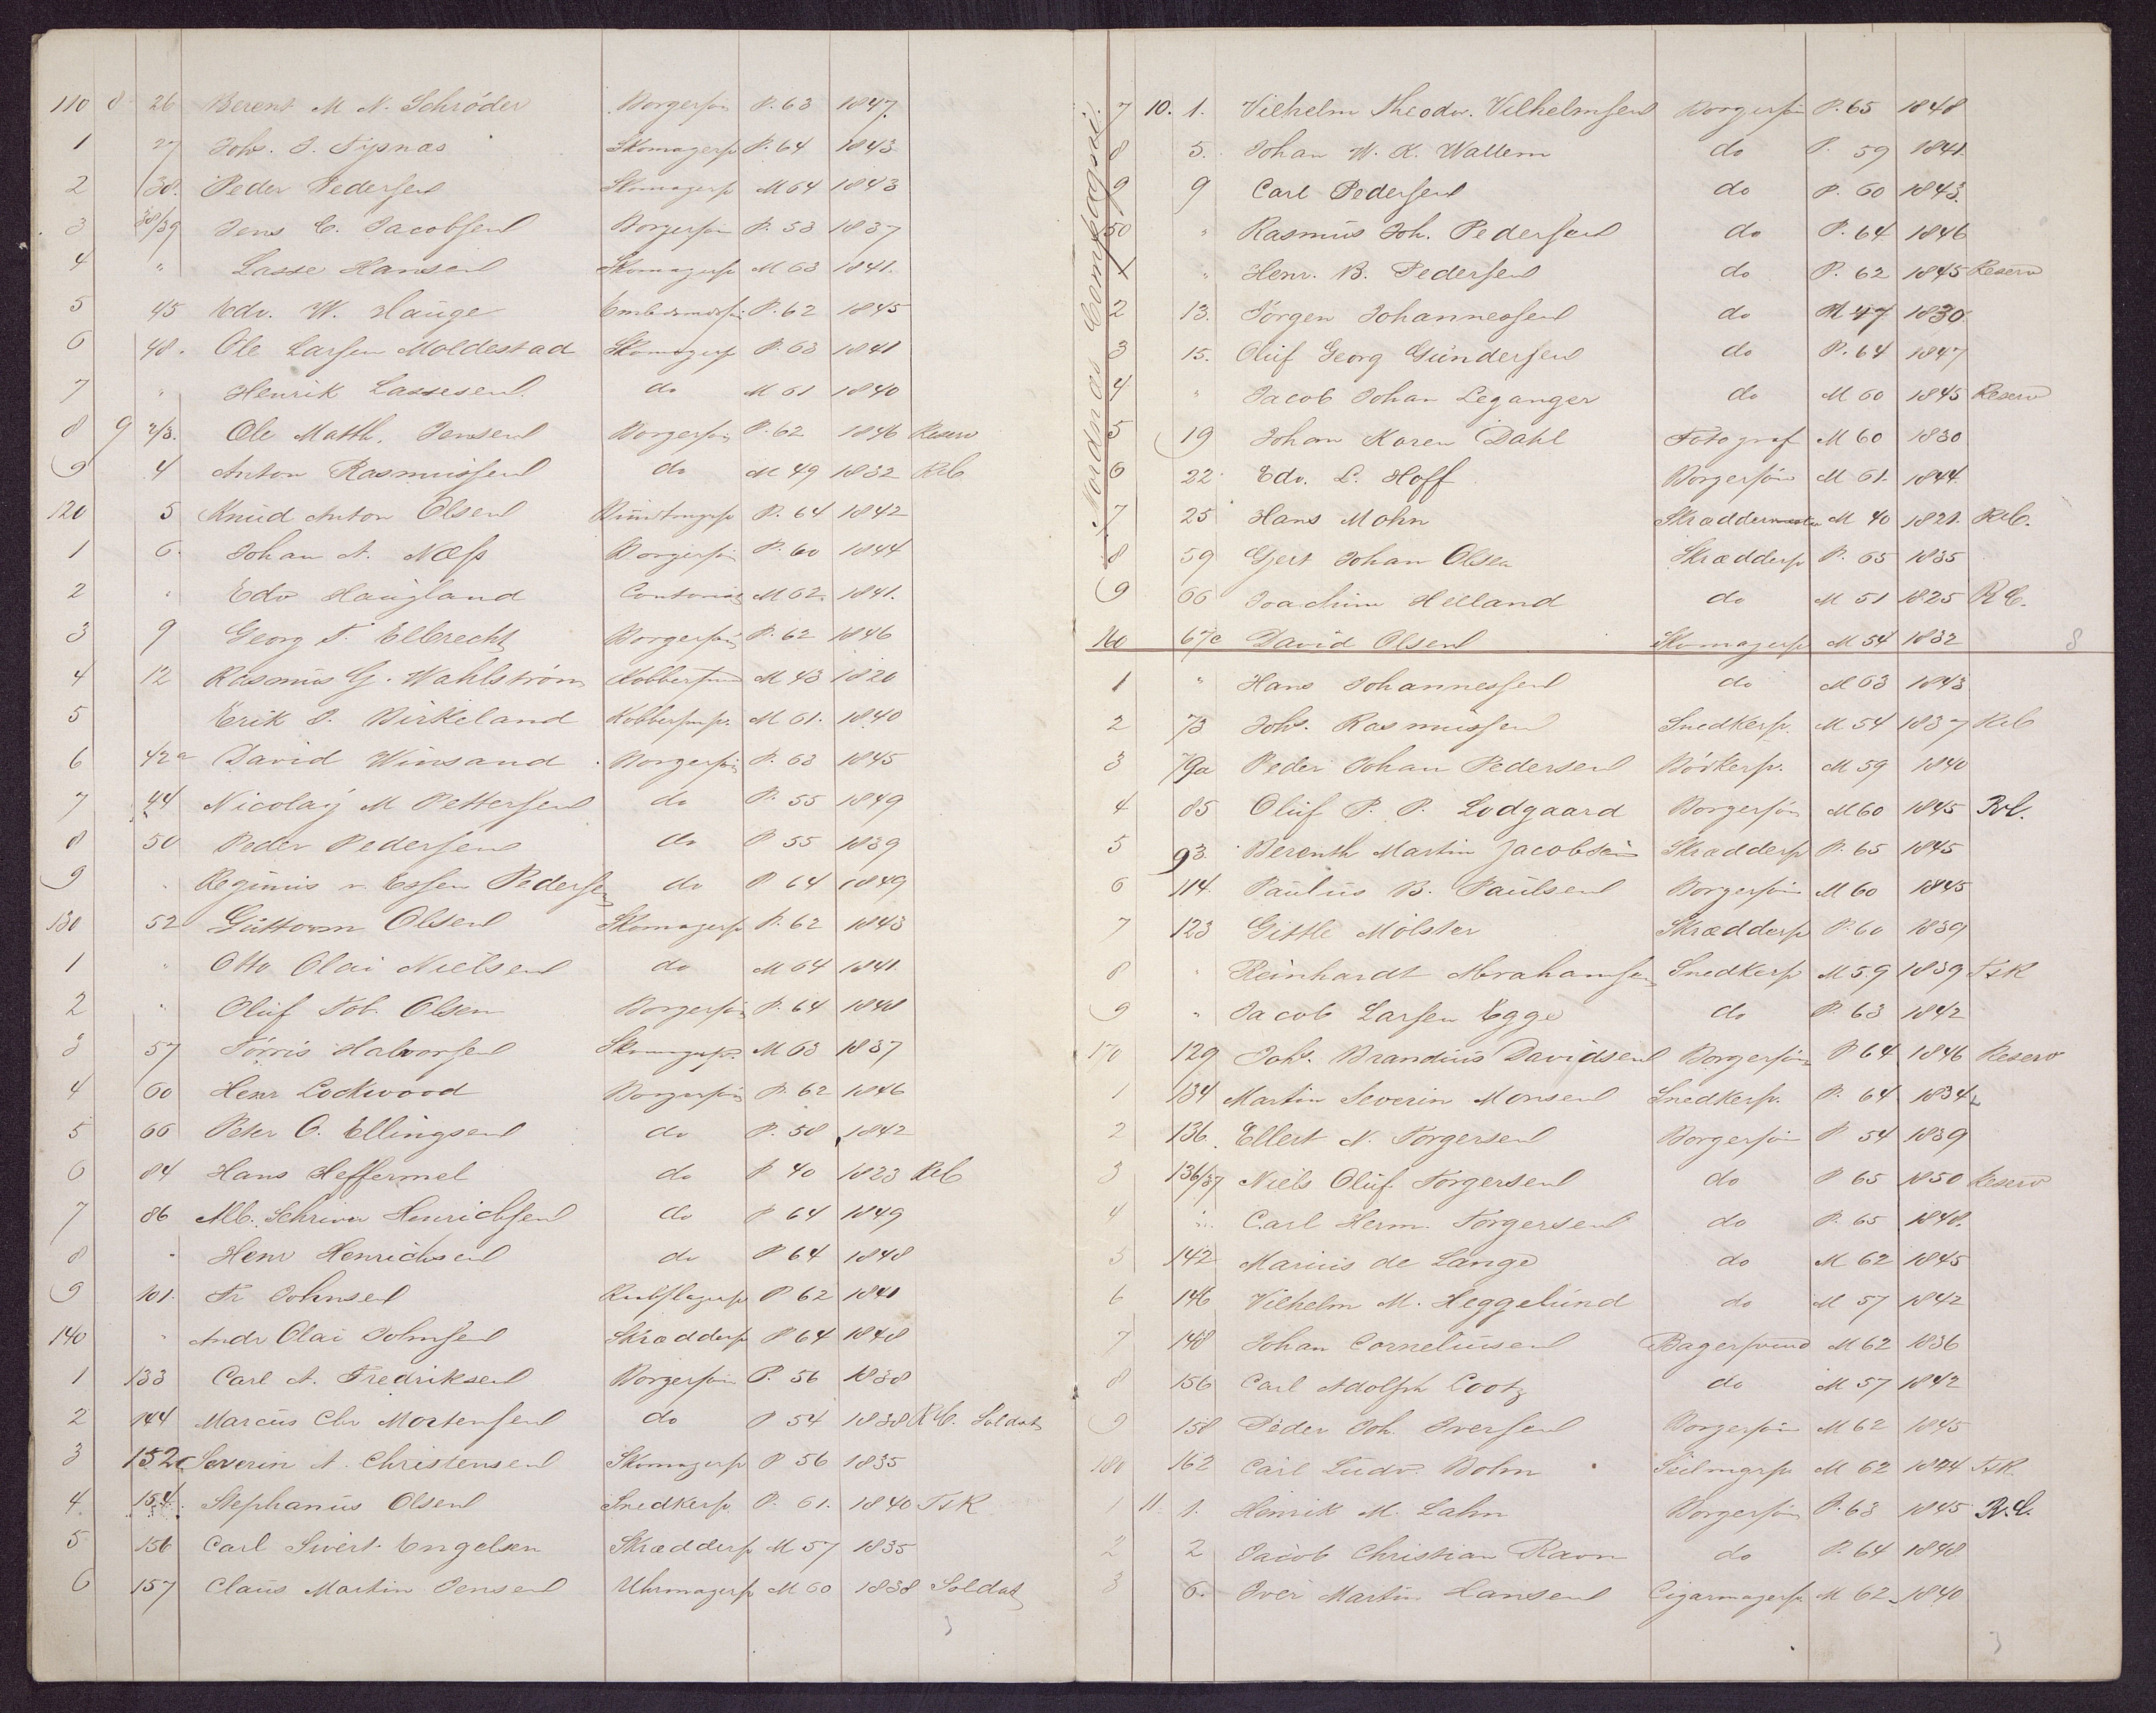 110 8 26 Berent M N. Schrøder Borgersøn P. 63 1847.
1 27 Johs. J. Tysnæs Skomagersv P. 64 1843
2 30. Peder Pedersen Skomagersv M 64 1843
3 38/39 Jens C. Jacobsen Borgersøn P. 53 1837
4 " Lasse Hansen Skomagersv M 63 1841.
5 45 Edv. W. Hauge P. 62 1845
6 48. Ole Larsen Moldestad Skomagersv P. 63 1841
7 " Henrik Lassesen. do M 61 1840
8 9 2/3. Ole Matth. Jensen Borgersøn P. 62 1846 Reserv
9 4 Anton Rasmussen do M 49 1832 RC
120 5 Knud Anton Olsen P. 64 1842
1 6. Johan A. Næss Borgersøn P. 60 1844
2 " Edv Haugland Contorist M 62. 1841.
3 9 Georg T. Elbrecht Borgersøn P. 62 1846
4 12 Rasmus G. Wahlstrøm M 43 1820
5 Erik J. Birkeland Kobbersmsv. M 61. 1840
6 42a David Winsand Borgersøn P. 63 1845
7 44 Nicolay M Pettersen do P. 55 1849
8 50 Peder Pedersen do P 55 1839
9 " Reginius v. Essen Pedersen do P 64 1849
130 52 Guttorm Olsen Skomagersv P. 62 1843
1 " Otto Olai Nielsen do M 64 1841.
2 " Oluf Tob. Olsen Borgersøn P. 64 1848
3 57 Tørris Halvorsen Skomagersv. M 63 1837
4 60 Henr Lockwood Borgersøn P. 62 1846
5 66 Peter O. Ellingsen do P. 58 1842
6 84 Hans Heffermel do P 40 1823 RC
7 86 Alb. Schriver Henrichsen do P 64 1849
8 " Henr Henrichsen do P 64 1848
9 101. Fr Johnsen Rebslagersv P 62 1841
140 " Andr Olai Johnsen Skræddersv P 64 1848
1 133 Carl A. Fredriksen Borgersøn P. 56 1838
2 144 Marcus Chr Mortensen do P 54 1838 RC. Soldat
3 152c Severin A. Christensen Skomagersv P 56 1835
4. 154. Stephanus Olsen Snedkersv P. 61. 1840 TsR
5 156 Carl Sivert Engelsen Skræddersv M 57 1835
6 157 Claus Martin Jensen Uhrmagersv M 60 1838 Soldat
Nordnæs Compagni.
7 10. 1. Vilhelm Theodor. Vilhelmsen Borgersøn P. 65 1848
8 5. Johan W. K. Wallem do P. 59 1841.
9 9 Carl Pedersen do P. 60 1843.
50 " Rasmus Joh. Pedersen do P. 64 1846
1 " Henr. B. Pedersen do P. 62 1845 Reserv
2 13. Jörgen Johannessen do M 47 1830.
3 15. Oluf Georg Gundersen do P. 64 1847
4 " Jacob Johan Leganger do M 60 1845 Reserv
5 19 Johan Koren Dahl Fotograf M 60 1830
6 22 Edv. L. Hoff Borgersøn M 61. 1844
7 25 Hans Mohn Skræddermester M 40 1821. RC.
8 59 Gjert Johan Olsen Skræddersv P. 65 1835
9 66 Joachim Helland do M 51 1825 RC.
160 67c David Olsen Skomagersv M 54 1832 8
1 " Hans Johannessen do M 63 1843
2 73 Johs. Rasmussen Snedkersv. M 54 1837 RC
3 79a Peder Johan Pedersen Bödkersv. M 59 1840
4 85 Oluf P. P. Lodgaard Borgersøn M 60 1845 RC.
5 93. Berenth Martin Jacobsen Skræddersv P. 65 1845
6 114. Paulus B. Paulsen Borgersøn M 60 1845
7 123 Gittle Mölster Skræddersv P. 60 1839
8 " Reinhardt Abrahamsen Snedkersv M 59 1839 TsR
9 " Jacob Larsen Egge do P. 63 1842
170 129 Johs. Brandius Davidsen Borgersøn P 64 1846 Reserv
1 134 Martin Severin Monsen Snedkersv. P. 64 1834
2 136. Ellert N. Torgersen Borgersøn P 54 1839
3 136/37 Niels Oluf Torgersen do P 65 1850 Reserv
4 " Carl Herm. Torgersen do P. 65 1848.
5 142 Marius de Lange do M 62 1845
6 146 Vilhelm M. Heggelund do M 57 1842
7 148 Johan Corneliusen Bagersvend M 62 1836
8 156 Carl Adolph Cootz do M 57 1842
9 158 Peder Joh. Iversen Borgersøn M 62 1845
180 162 Carl Ludv. Bohn Seilmgrsv M 62 1844 TsR
1 11. 1. Henrik M. Lahn Borgersøn P. 63 1845 R.C.
2 2 Jacob Christian Ravn do P. 64 1848
3 6. Iver Martin Hansen Cigarmagersv. M 62. 1840